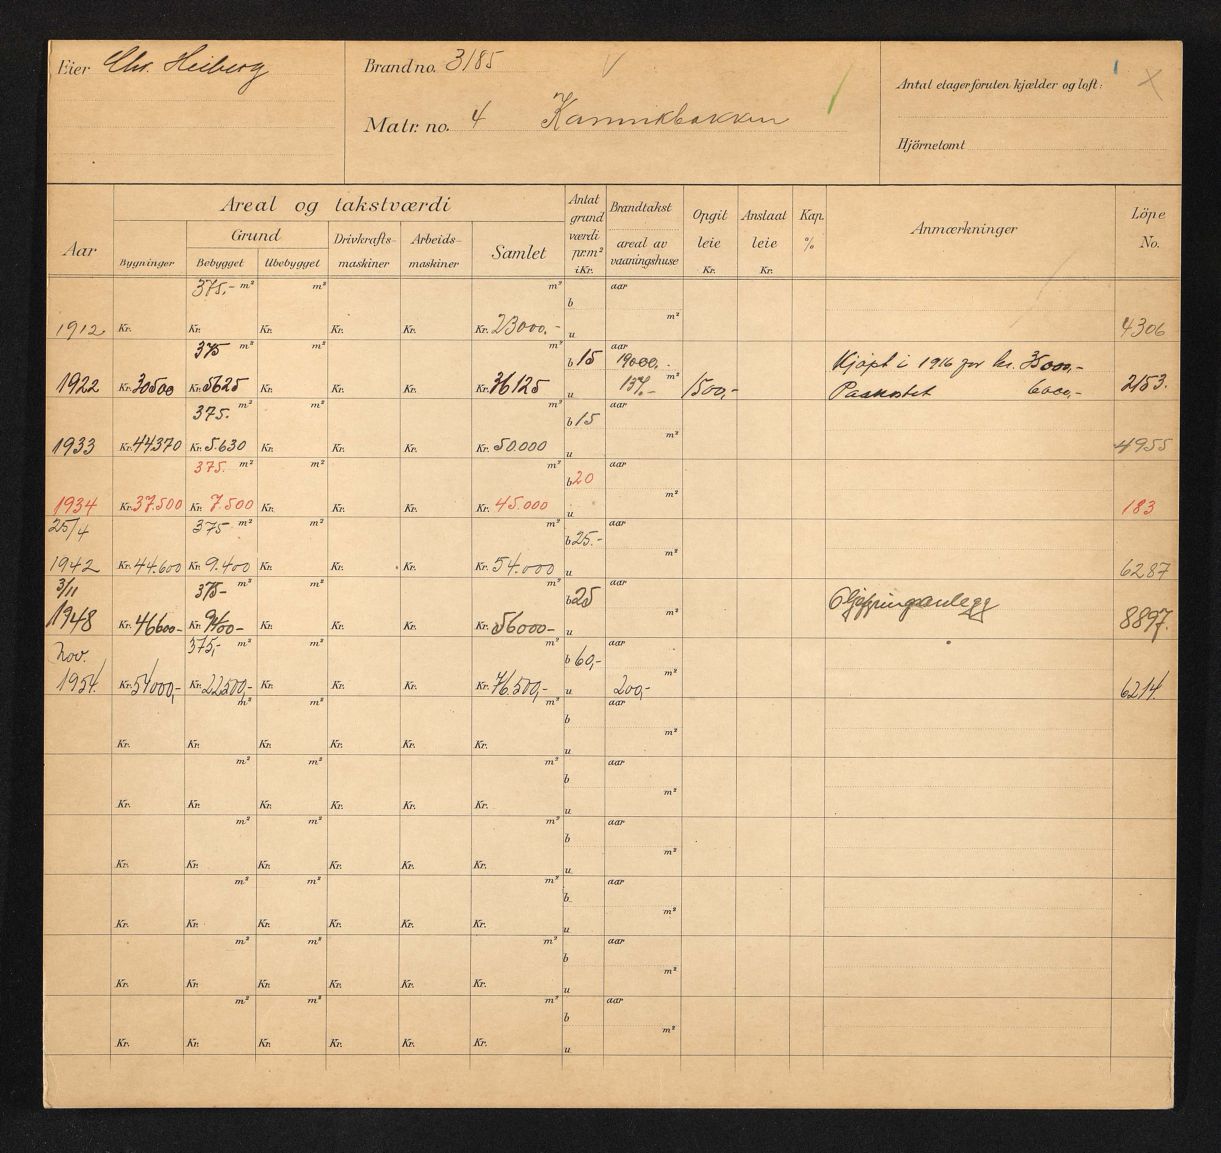 Eier Chr. Heiberg
Brandno. 3185
Matr. no. 4 Kannikbakken
Antal etager foruten kjælder og loft:
Hjörnetomt
Aar
Areal og takstværdi
Bygninger
Grund
Bebygget
Ubebygget
Drivkrafts-
maskiner
Arbeids-
maskiner
Samlet
Antat
grund
værdi
pr.m²
i Kr.
Brandtakst
areal av
vaaningshuse
Opgit
leie
Kr.
Anslaat
leie
Kr.
Kap.
%
Anmærkninger
Löpe
No.
375,- m² m² m² b aar
m²
1912 Kr. Kr. Kr. Kr. Kr. Kr. 23000.- u 4306
375 m² m² m² b 15 aar 19000,- Kjöpt i 1916 for kr. 35000,-
1922 Kr. 30500 Kr. 5625 Kr. Kr. Kr. Kr. 36125 u 137.- m² 1500,- Paakostet 6000,- 2153.
375. m² m² m² b 15 aar
m²
1933 Kr. 44370 Kr. 5.630 Kr. Kr. Kr. Kr. 50.000 u 4955
375. m² m² m² b 20 aar
m²
1934 Kr. 37.500 Kr. 7.500 Kr. Kr. Kr. Kr. 45.000 u 183
25/4 375 m² m² m² b 25.- aar
m²
1942 Kr. 44.600 Kr. 9.400 Kr. Kr. Kr. Kr. 54.000 u 6287
3/11 375- m² m² m² b 25 aar
m²
1948 Kr. 46600- Kr. 9400- Kr. Kr. Kr. Kr. 56000- u Oljefyringsanlegg 8897.
Nov. 375,- m² m² m² b 60,- aar
m²
1954. Kr. 54000,- Kr. 22500,- Kr. Kr. Kr. Kr. 76.500,- u 200,- 6214.
m² m² m² b aar
m²
Kr. Kr. Kr. Kr. Kr. Kr. u
m² m² m² b aar
m²
Kr. Kr. Kr. Kr. Kr. Kr. u
m² m² m² b aar
m²
Kr. Kr. Kr. Kr. Kr. Kr. u
m² m² m² b aar
m²
Kr. Kr. Kr. Kr. Kr. Kr. u
m² m² m² b aar
m²
Kr. Kr. Kr. Kr. Kr. Kr. u
m² m² m² b aar
m²
Kr. Kr. Kr. Kr. Kr. Kr. u